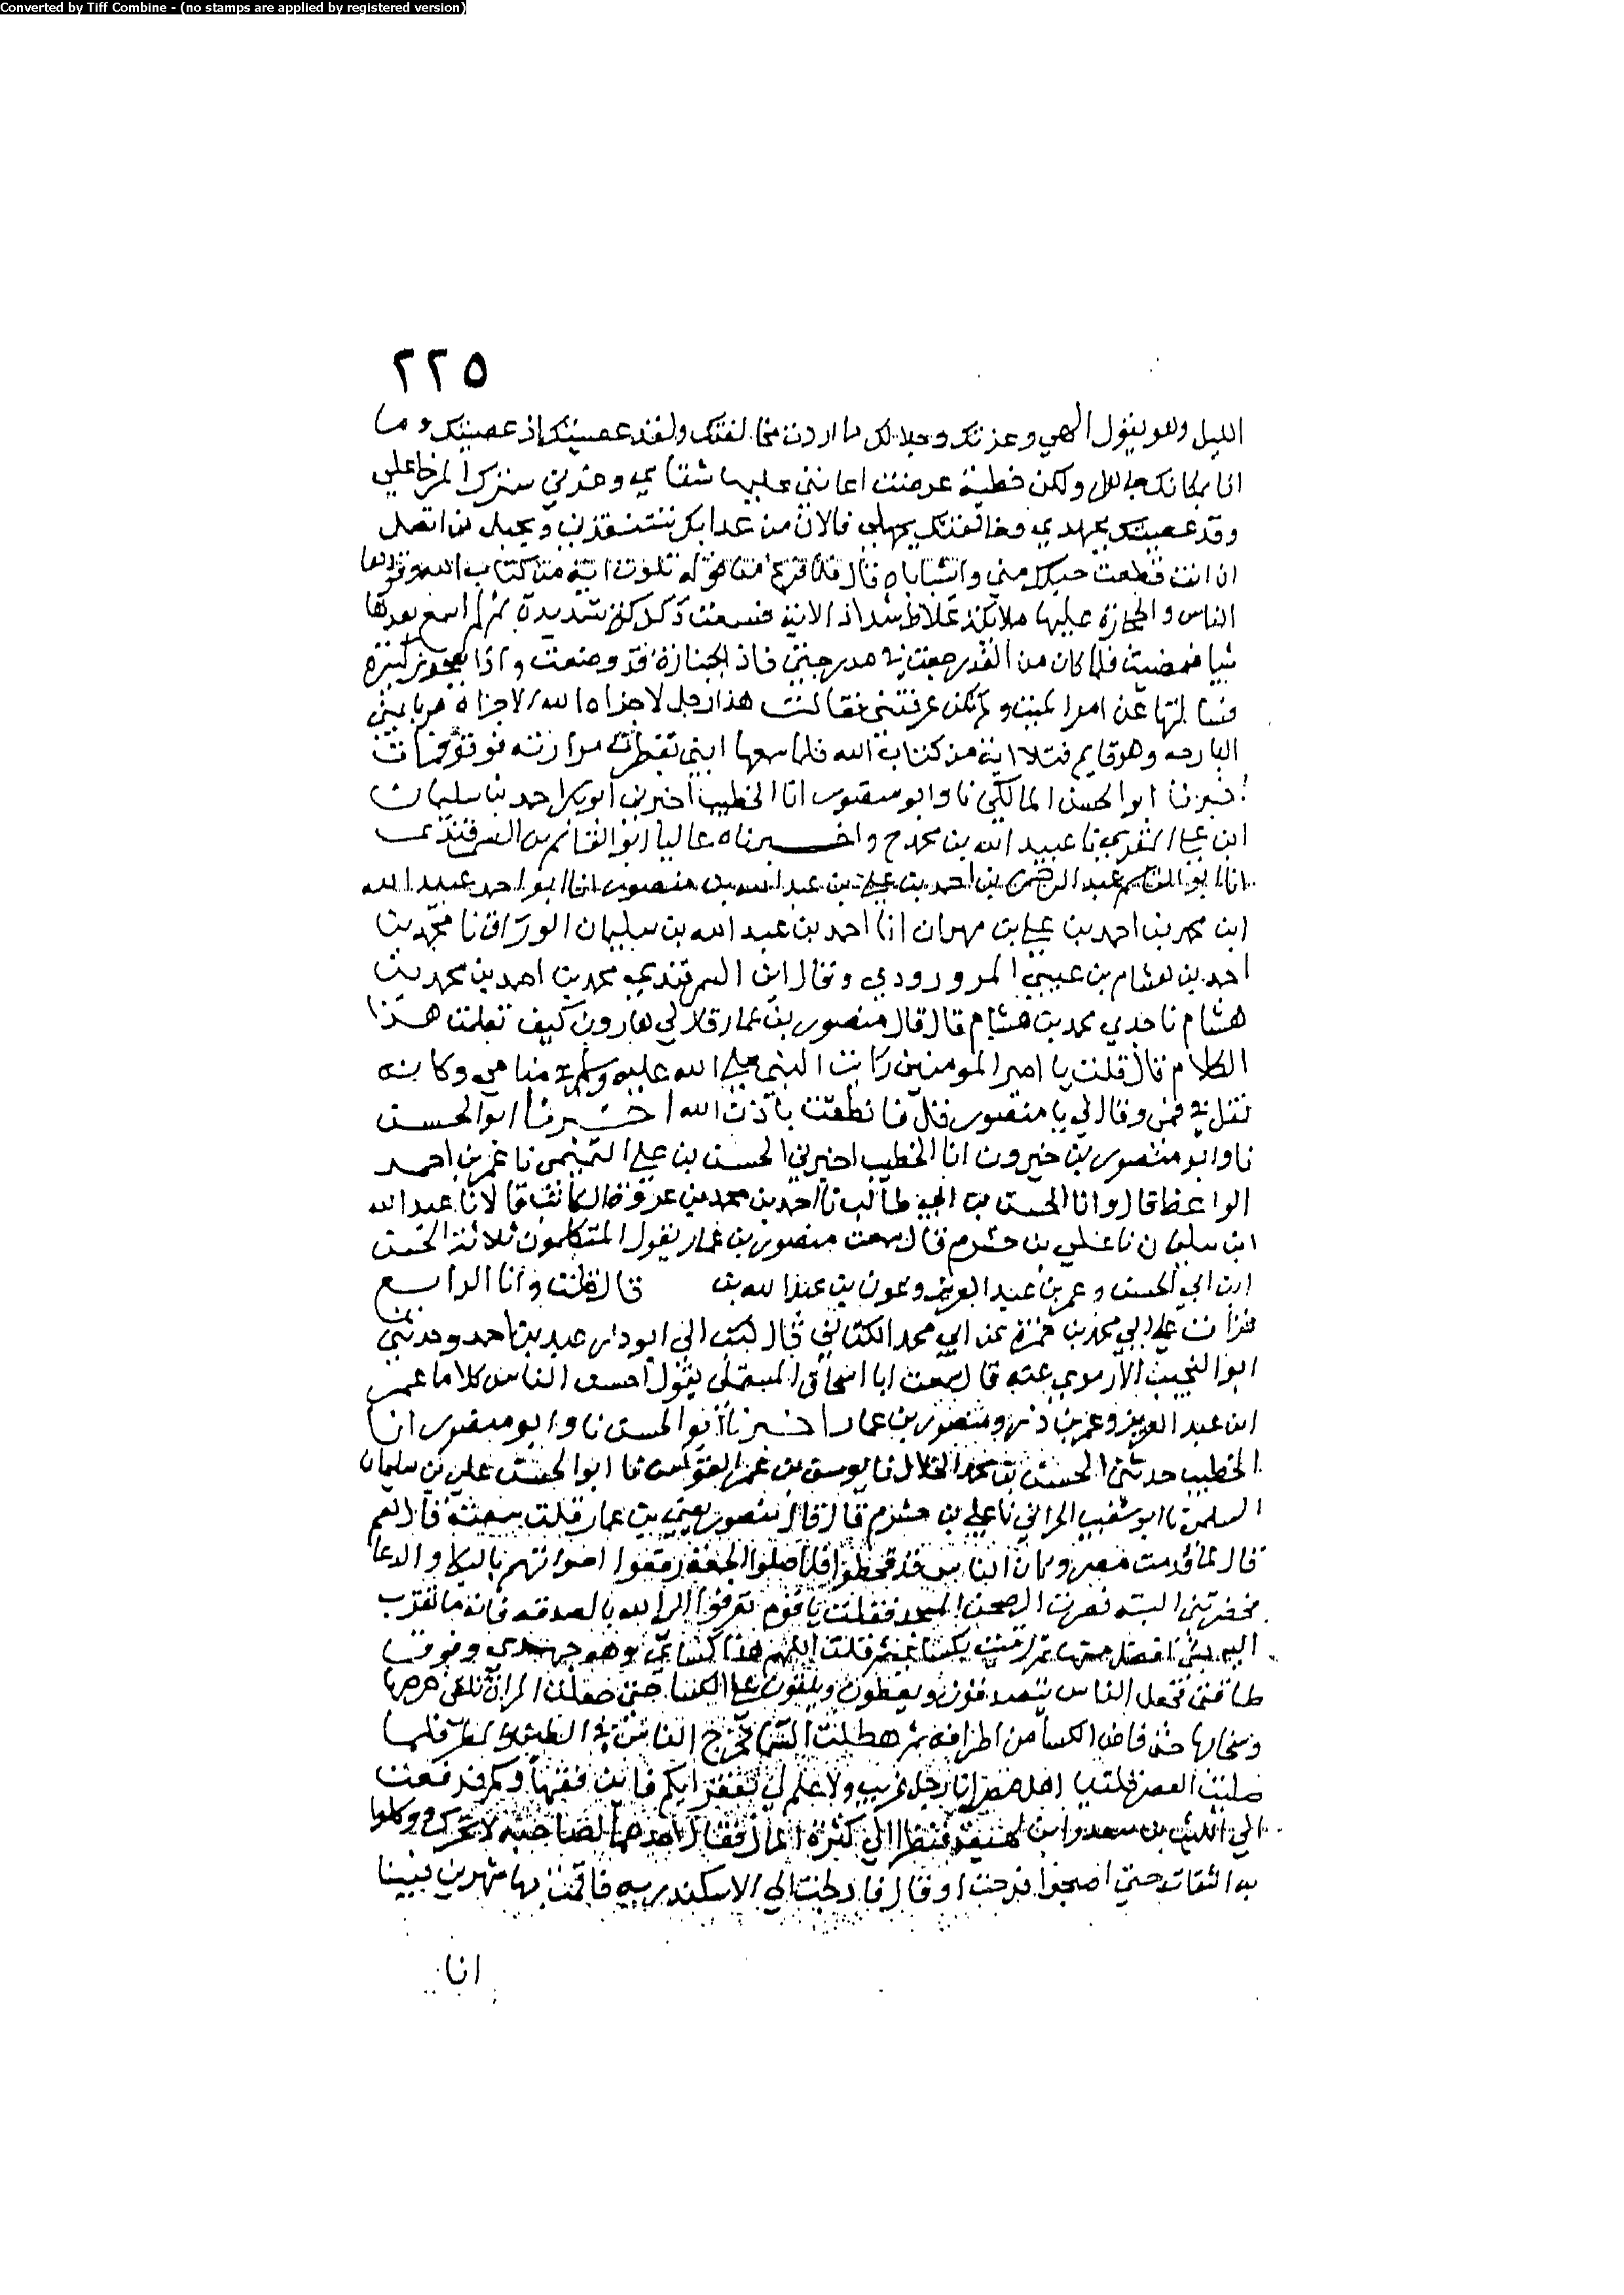 Converted by Tiff Combine - (no stamps are applied by registered version)
٢٢٥
الليل وهو يقول الهي وعزتك وجلالك ما اردت مخالفتك ولقد عصيتك اذ عصيتك وما
انا بمكانك جاهل ولكن خطية عرضت اعانني عليها شقاي وغرني سترك المرخا علي
وقد عصيتك بجهدي وخالفتك بجهلي فالان من عدابك من يستنقذني وبحبل من اتصل
ان انت قطعت حبلك مني واشباباه قال فلما فرغ من قوله تلوت اية من كتاب الله وقودها
الناس والحجارة عليها ملايكة غلاظ شداد الاية فسمعت دكدكة شديدة ثم لم اسمع بعدها
شيا فمضيت فلما كان من الغد رجعت في مدرجتي فاذا بجنازة قد وضعت واذا بعجوز كبيرة
فسالتها عن امر الميت ولم تكن عرفتني فقالت هذا رجل لا جزاه الله الا جزاه مر بابني
البارحه وهو قايم فتلا اية من كتاب الله فلما سمعها ابني تفطرت مرارته فوقع فمات
اخبرنا ابو الحسن المالكي نا وابو منصور انا الخطيب اخبرني ابو بكر احمد بن سليمان
ابن علي المقري نا عبيد الله بن محمد ح واخبرناه عاليا ابو القاسم بن السمرقندي
انا ابو القاسم عبد الرحمن بن احمد بن علي بن عبد الله بن منصور انا ابو احمد عبيد الله
ابن محمد بن احمد بن علي بن مهران انا احمد بن عبد الله بن سليمان الوراق نا محمد بن
احمد بن هشام بن عيسي المروروذي وقال ابن السمرقندي محمد بن احمد بن محمد بن
هشام نا جدي محمد بن هشام قال قال منصور بن عمار قال لي هارون كيف تعلمت هذا
الكلام قال قلت يا امير المومنين رايت النبي صلى الله عليه وسلم في منامي وكانه
تفل في فمي وقال لي يا منصور قل فانطقت باذن الله اخبرنا ابو الحسن
نا وابو منصور بن خيرون انا الخطيب اخبرني الحسن بن علي التميمي نا عمر بن احمد
الواعظ قال وانا الحسن بن ابي طالب نا احمد بن محمد بن عروة الكاتب قالا نا عبد الله
ابن سليمان نا علي بن خشرم قال سمعت منصور بن عمار يقول المتكلمون ثلاثة الحسن
ابن ابي الحسن وعمر بن عبد العزيز وعون بن عبد الله بن قال قلت وانا الرابع
قرات علي ابي محمد بن حمزة عن ابي محمد الكتاني قال كتب الي ابو ذر عبد بن احمد وحدثني
ابو النجيب الارموي عنه قال سمعت ابا اسحاق المستملي يقول احسن الناس كلاما عمر
ابن عبد العزيز وعمر بن ذر ومنصور بن عمار اخبرنا ابو الحسن نا وابو منصور انا
الخطيب حدثني الحسن بن محمد الخلال نا يوسف بن عمر القواس نا ابو الحسن علي بن سليمان
السلمي نا ابو شعيب الحراني نا علي بن خشرم قال قال منصور يعني بن عمار قلت سمعته قال نعم
قال لما قدمت مصر وكان الناس قد قحطوا فلما صلوا الجمعة رفعوا اصواتهم بالبكا والدعا
فحضرتني النية فصرت الى صحن المسجد فقلت يا قوم تقربوا الى الله بالصدقه فانه ما تقرب
اليه بشي افضل منها ثم رميت بكساي ثم قلت اللهم هذا كساي وهو جهدي وفوق
طاقتي فجعل الناس يتصدقون ويعطون ويلقون علي الكسا حتى جعلت المراة تلقي خرصها
وسخابها حتى فاض الكسا من اطرافه ثم هطلت السما فخرج الناس في الطين والمطر فلما
صليت العصر قلت يا اهل مصر انا رجل غريب ولا علم لي بفقرايكم فاين فقهاوكم فدفعت
الى الليث بن سعد وابن لهيعة فنظرا الى كثرة المال فقال احدهما لصاحبه لا تحرك ووكلوا
به الثقات حتى اصبحوا فرحت اوقال فادلجت الي الاسكندريه فاقمت بها شهرين فبينا
انا